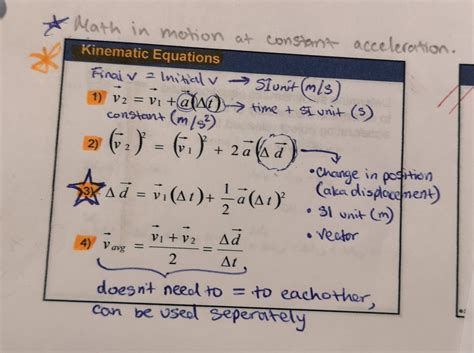 Math in motion at constant acceleration.
Kinematic Equations
Final v = Initial v → SI unit (m/s)
1) v⃗₂ = v⃗₁ + a⃗(Δt) → time + SI unit (s)
constant (m/s²)
2) (v⃗₂)² = (v⃗₁)² + 2a⃗(Δd⃗)
• change in position
(aka displacement)
3) Δd⃗ = v⃗₁(Δt) + 1/2 a⃗(Δt)²
• SI unit (m)
• vector
4) v⃗avg = (v⃗₁ + v⃗₂)/2 = Δd⃗/Δt
doesn't need to = to eachother,
can be used seperately